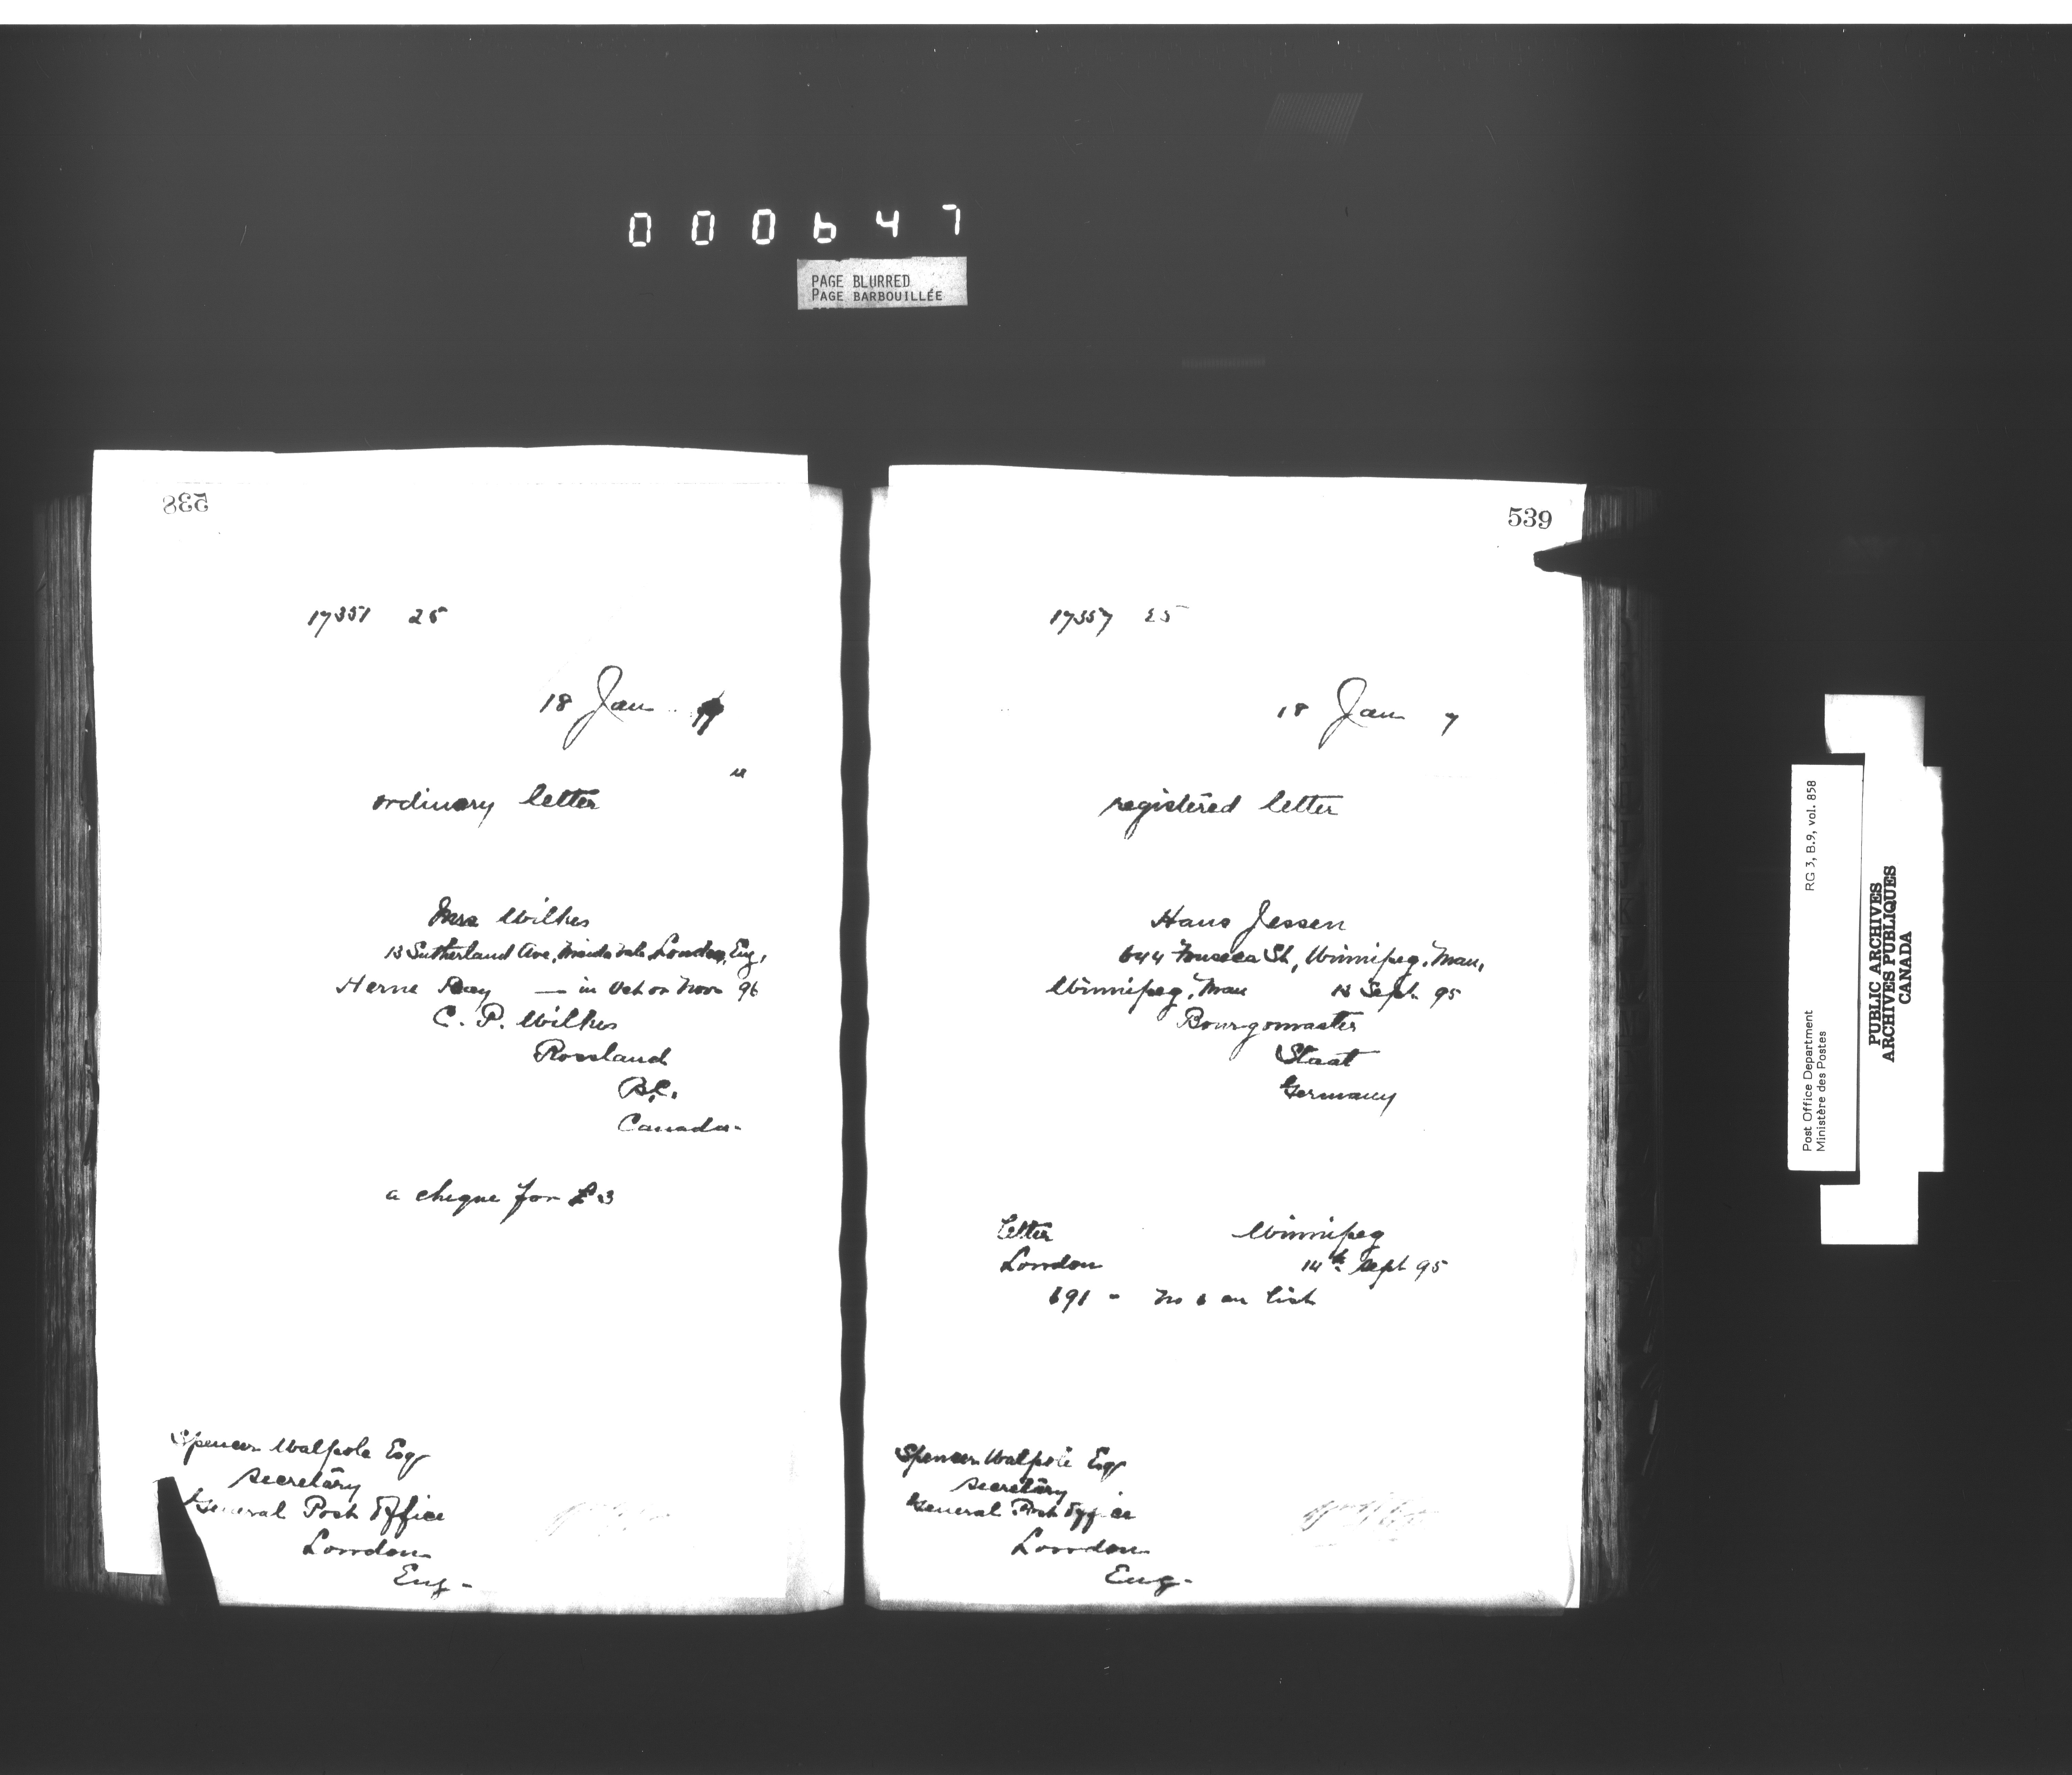 000647
PAGE BLURRED
PAGE BARBOUILLÉE
538
17351 25
18 Jan
"
ordinary letter
Mrs Wilkes
13 Sutherland Ave, Maida Vale, London, Eng,
Herne Bay — in Oct or Nov 96
C. P. Wilkes
Rossland
B.C.
Canada-
a cheque for £3
Spencer Walpole Esq
Secretary
General Post Office
London
Eng-
539
17357 25
18 Jan 7
registered letter
Hans Jessen
644 Fonseca St, Winnipeg, Man,
Winnipeg, Man 13 Sept 95
Bourgomaster
Staat
Germany
letter Winnipeg
London 14th Sept 95
691 - No 6 on list
Spencer Walpole Esq
Secretary
General Post Office
London
Eng-
Post Office Department RG 3, B.9, vol. 858
Ministère des Postes
PUBLIC ARCHIVES
ARCHIVES PUBLIQUES
CANADA